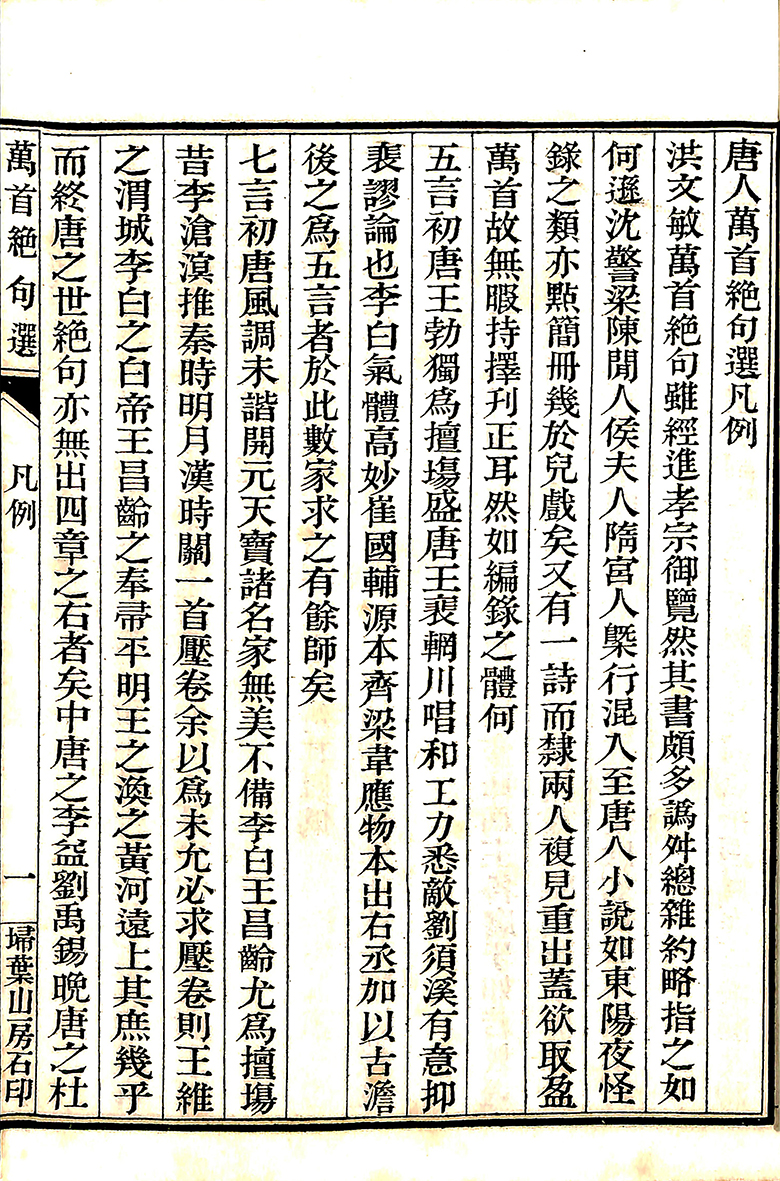 唐人萬首絕句選凡例
洪文敏萬首絕句雖經進孝宗御覽然其書頗多譌舛總雜約略指之如
何遜沈警梁陳閒人侯夫人隋宮人槩行混入至唐人小說如東陽夜怪
錄之類亦點簡冊幾於兒戲矣又有一詩而隸兩人複見重出蓋欲取盈
萬首故無暇持擇刊正耳然如編錄之體何
五言初唐王勃獨爲擅場盛唐王裴輞川唱和工力悉敵劉須溪有意抑
裴謬論也李白氣體高妙崔國輔源本齊梁韋應物本出右丞加以古澹
後之爲五言者於此數家求之有餘師矣
七言初唐風調未諧開元天寶諸名家無美不備李白王昌齡尤爲擅場
昔李滄溟推秦時明月漢時關一首壓卷余以爲未允必求壓卷則王維
之渭城李白之白帝王昌齡之奉帚平明王之渙之黃河遠上其庶幾乎
而終唐之世絕句亦無出四章之右者矣中唐之李益劉禹錫晚唐之杜
萬首絕句選 凡例 一 埽葉山房石印